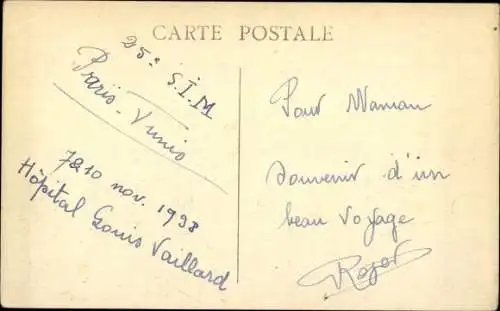 CARTE POSTALE
25e S.I.M
Paris-Tunis
7 à 10 nov. 1938
Hôpital Louis Vaillard
Pour Maman
souvenir d'un
beau voyage
Roger